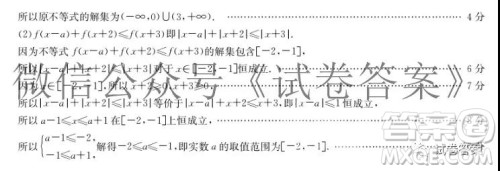 所以原不等式的解集为(-∞,0)∪(3,+∞). 4分
(2)f(x-a)+f(x+2)≤f(x+3)即|x-a|+|x+2|≤|x+3|.
因为不等式 f(x-a)+f(x+2)≤f(x+3)的解集包含[-2,-1],
所以|x-a|+|x+2|≤|x+3|对于 x∈[-2,-1]恒成立. 6分
因为x∈[-2,-1],所以x+2≥0,x+3≥0, 7分
所以|x-a|+|x+2|≤|x+3|等价于|x-a|+x+2≤x+3,即|x-a|≤1恒成立,
所以 a-1≤x≤a+1在[-2,-1]上恒成立,
所以{a-1≤-2, -1≤a+1, 解得-2≤a≤-1,即实数 a 的取值范围为[-2,-1].
微信公众号《试卷答案》
答案圈
MXQE.COM